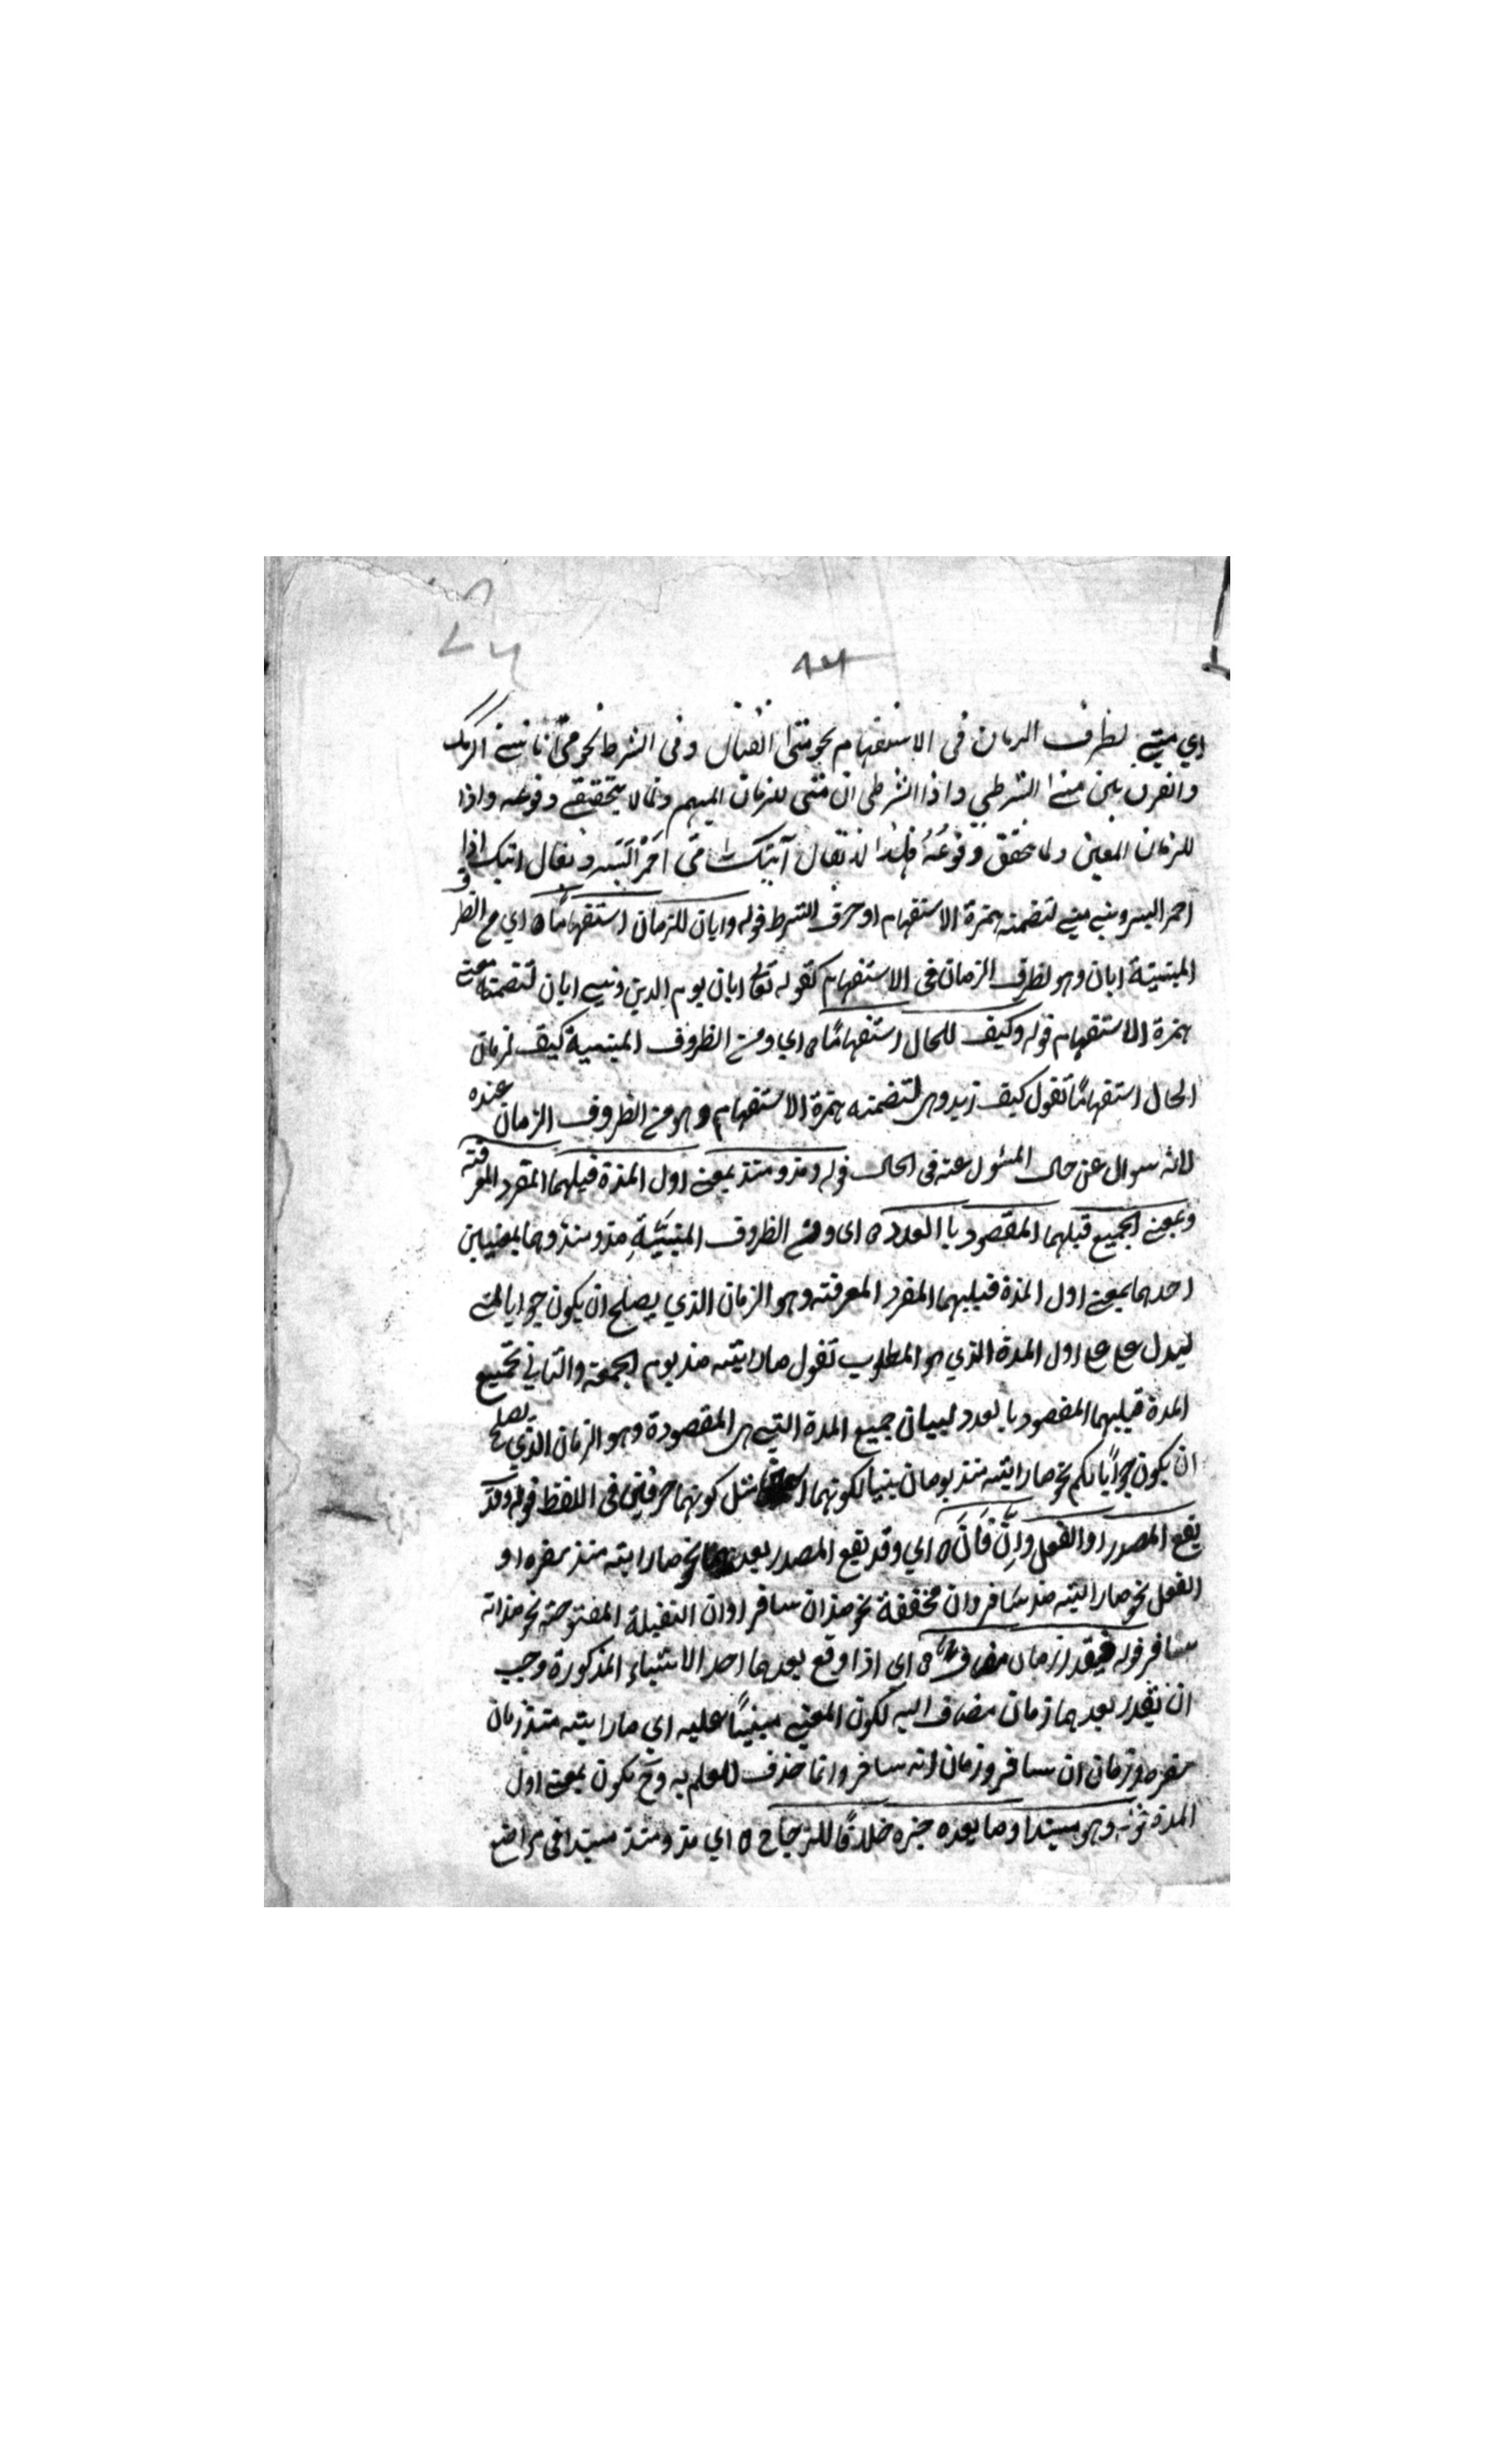 ٨٣
اي متى لظرف الزمان فى الاستفهام نحو متى القتال وفى الشرط نحو متى تاتنى اكرمك
والفرق بين متى الشرطى واذا الشرطى ان متى للزمان المبهم ولما لا يتحقق وقوعه واذا
للزمان المعين ولما تحقق وقوعه فلهذا لا تقال آتيك متى احمر البسر وتقال اتيك اذا
احمر البسر وبنى متى لتضمنه همزة الاستفهام او حرف الشرط قوله وايان للزمان استفهامًا ه اي من الظرو
المبنية ايان وهو لظرف الزمان فى الاستفهام كقوله تعالى ايان يوم الدين وبنى ايان لتضمنه معنى
همزة الاستفهام قوله وكيف للحال استفهامًا ه اي ومن الظروف المبنية كيف لزمان
الحال استفهامًا تقول كيف زيد وهى لتضمنه همزة الاستفهام وهو من الظروف الزمان عنده
لانه سوال عن حال المسئول عنه فى الحال قوله ومذ ومنذ بمعنى اول المدة فيليهما المفرد المعرفته
وبمعنى الجميع فيليهما المقصود با العدد ه اى ومن الظروف المبنيّة مذ ومنذ وهما بمعنيين
احدهما بمعنى اول المدة فيليهما المفرد المعرفته وهو الزمان الذي يصلح ان يكون جوابا لمتى
ليدل على اول المدة الذي هو المطلوب تقول ما رايته منذ يوم الجمعة والثانى جميع
المدة فيليهما المقصود با لعدد لبيان جميع المدة التى هى المقصودة وهو الزمان الذي يصلح
ان يكون جوابًا لكم نحو ما رايته منذ يومان بنيا لكونهما مثل كونهما حرفين فى اللفظ قوله وقد
يقع المصدر او الفعل وانّ فانّ ه اي وقد يقع المصدر بعدهما نحو ما رايته منذ سفره او
الفعل نحو ما رايته منذ سافر وان مخففة نحو منذ ان سافر او ان الثقيلة المفتوحته نحو منذ انه
سافر قوله فيقدر زمان مضاف ه اي اذا وقع بعدهما احد الاشياء المذكورة وجب
ان يقدر بعدهما زمان مضاف اليه لكون المعنى مبنيًا عليه اي ما رايته منذ زمان
سفره وزمان ان سافر وزمان انه سافر وانما حذف للعلم به وح يكون بمعنى اول
المدة قوله وهو مبتدا وما بعده خبره خلافًا للزجاج ه اي مذ ومنذ مبتدا فى مواضع